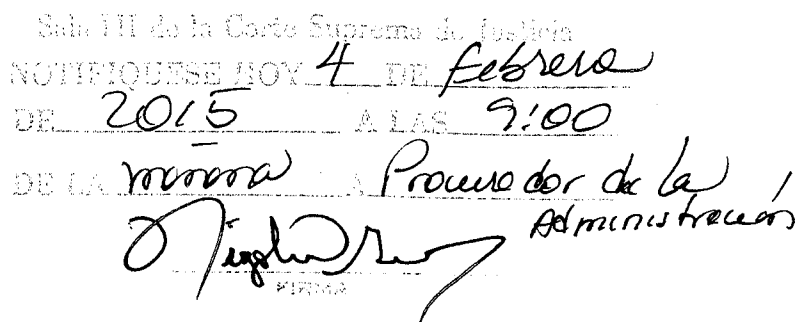 Sala III de la Corte Suprema de Justicia
NOTIFIQUESE HOY 4 DE febrero
DE 2015 A LAS 9:00
DE LA mañana A Procurador de la
Administración
FIRMA